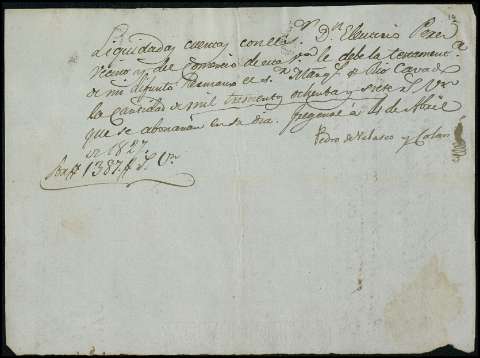 Liquidadas cuentas con el Sr. Dn. Eleuterio Perez
Vecino y del Comercio de esta se le debe la testamentª
de mi difunto Hermano el Sr. Marqs. de Rio Cavado
la cantidad de mil trescientos ochenta y siete rs. Vn.
que se abonarán en su dia. Fregenal á 4 de Abril
de 1827.
Pedro de Velasco y
1387 rs. Vn.